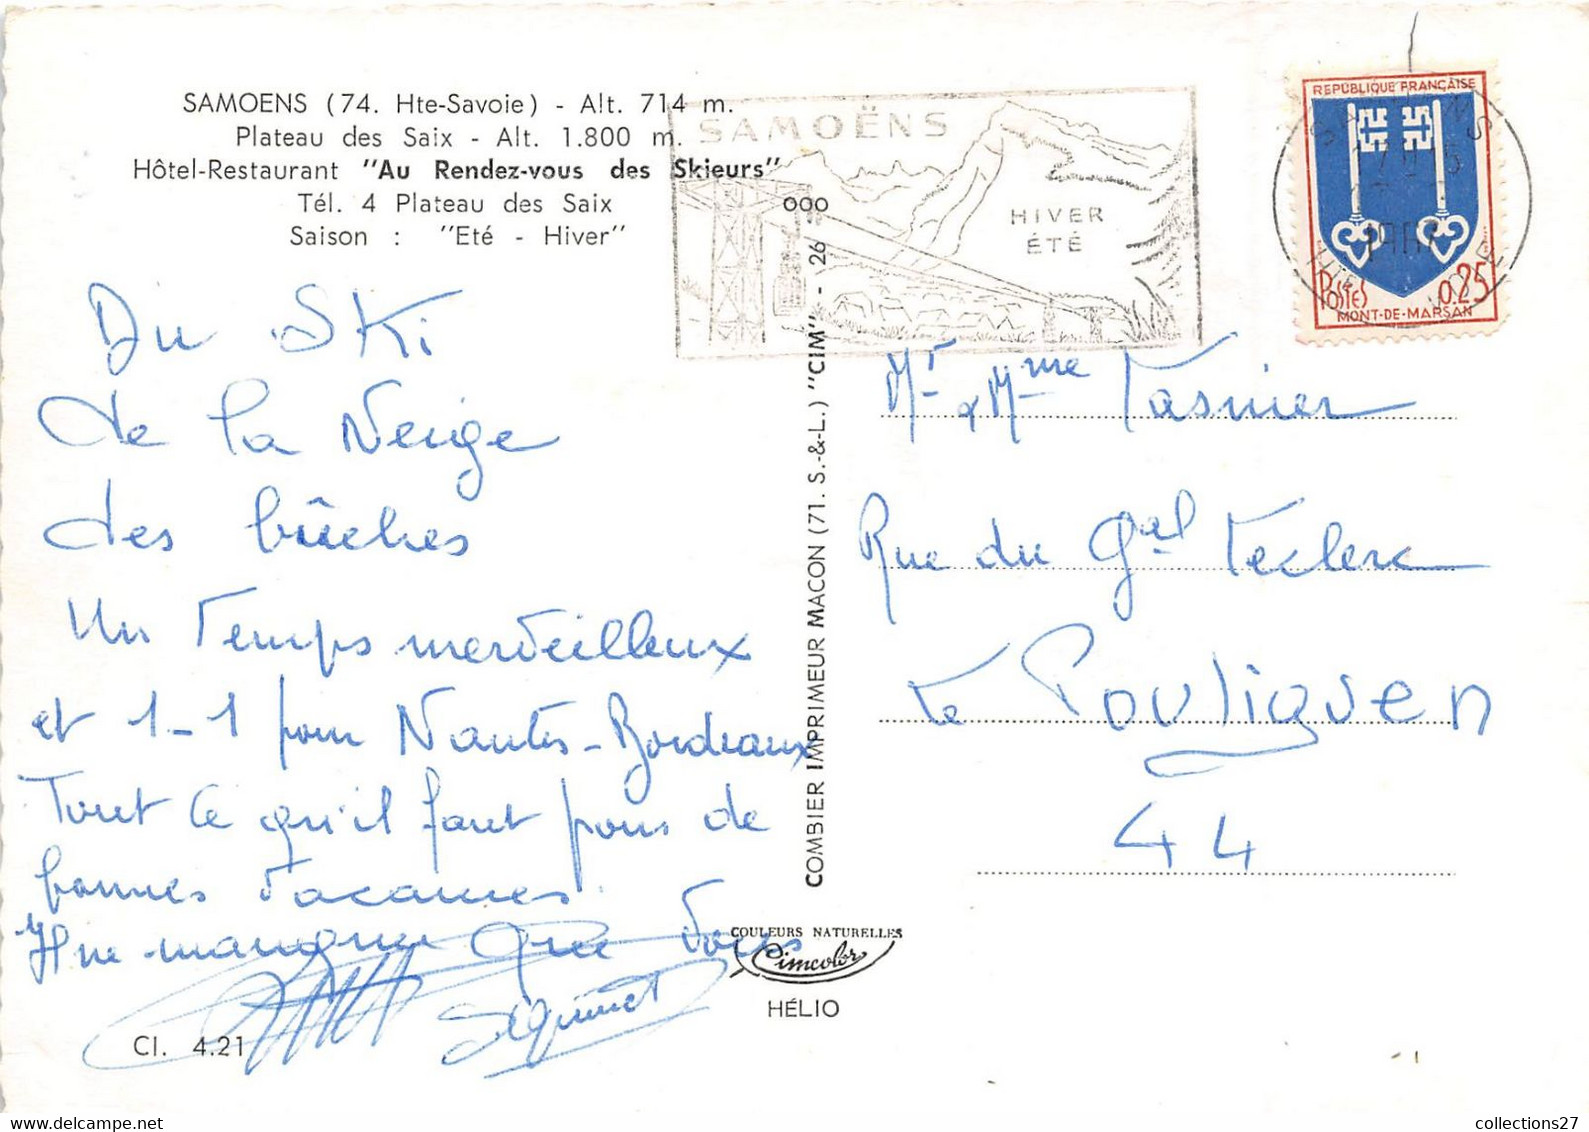 SAMOENS (74. Hte-Savoie) - Alt. 714 m.
Plateau des Saix - Alt. 1.800 m.
Hôtel-Restaurant "Au Rendez-vous des Skieurs"
Tél. 4 Plateau des Saix
Saison : "Eté - Hiver"
SAMOËNS
HIVER
ÉTÉ
000
RÉPUBLIQUE FRANÇAISE
POSTES 0,25
MONT-DE-MARSAN
Du Ski
de la Neige
des bûches
Un Temps merveilleux
et 1-1 pour Nantes-Bordeaux
Tout ce qu'il faut pour de
bonnes vacances.
Il ne manque que vous
CI. 4.21
COMBIER IMPRIMEUR MACON (71. S.-&-L.) "CIM" - 26
COULEURS NATURELLES
Cimcolor
HÉLIO
Mr & Mme Tasnier
Rue du Gal Leclerc
Le Pouliguen
44
collections27